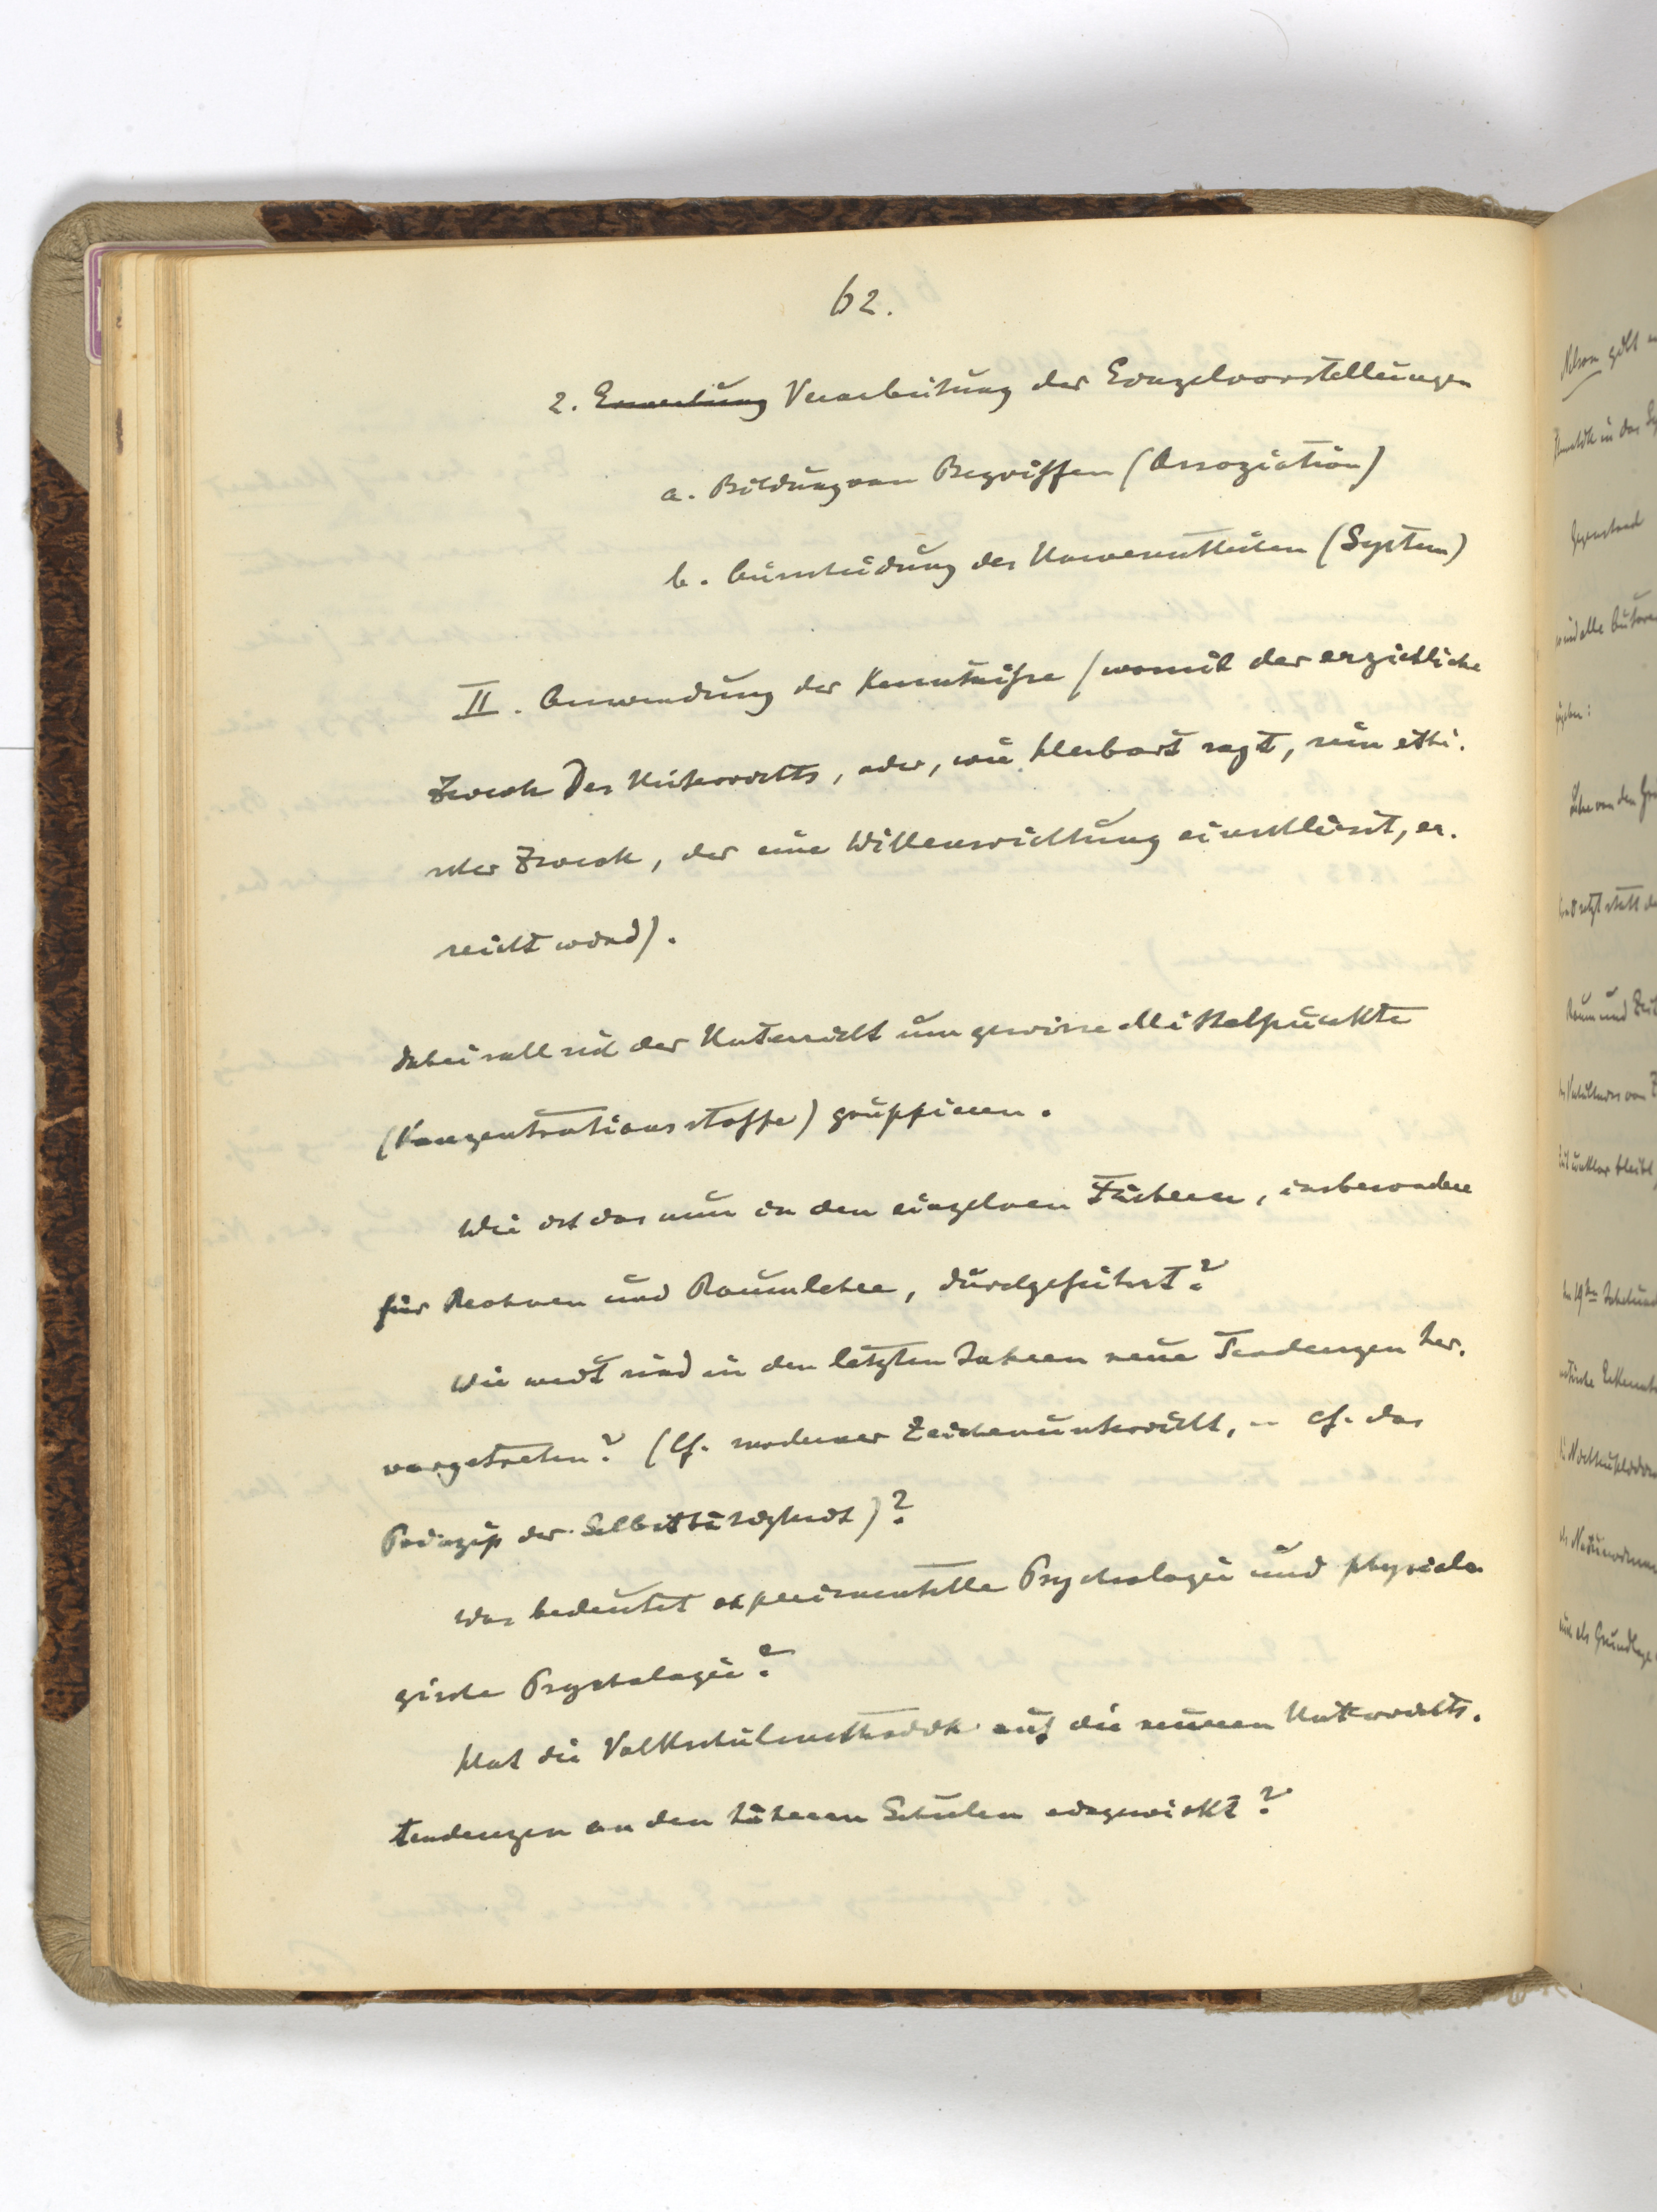 62.
2. Erwerbung Verarbeitung der Einzelvorstellungen
a. Bildung von Begriffen (Assoziation)
b. Ausscheidung des Unwesentlichen (System)
II. Anwendung der Kenntnisse (womit der erziehliche
Zweck des Unterrichts, oder, wie Herbart sagt, sein ethi-
scher Zweck, der eine Willensrichtung einschliesst, er-
reicht wird).
Dabei soll sich der Unterricht um gewisse Mittelpunkte
(Konzentrationsstoffe) gruppieren.
Wie ist das nun in den einzelnen Fächern, insbesondere
für Rechnen und Raumlehre, durchgeführt?
Wie weit sind in den letzten Jahren neue Tendenzen her-
vorgetreten? (Cf. moderner Zeichenunterricht, – cf. das
Prinzip der Selbsttätigkeit)?
Was bedeutet experimentelle Psychologie und physiolo-
gische Psychologie?
Hat die Volksschulmethodik auf die neueren Unterrichts-
tendenzen an den höheren Schulen eingewirkt?
Nelson gibt
Gegenstand
und alle
Lehre von den
statt
Raum und Zeit
bleibt
auch als Grundlage